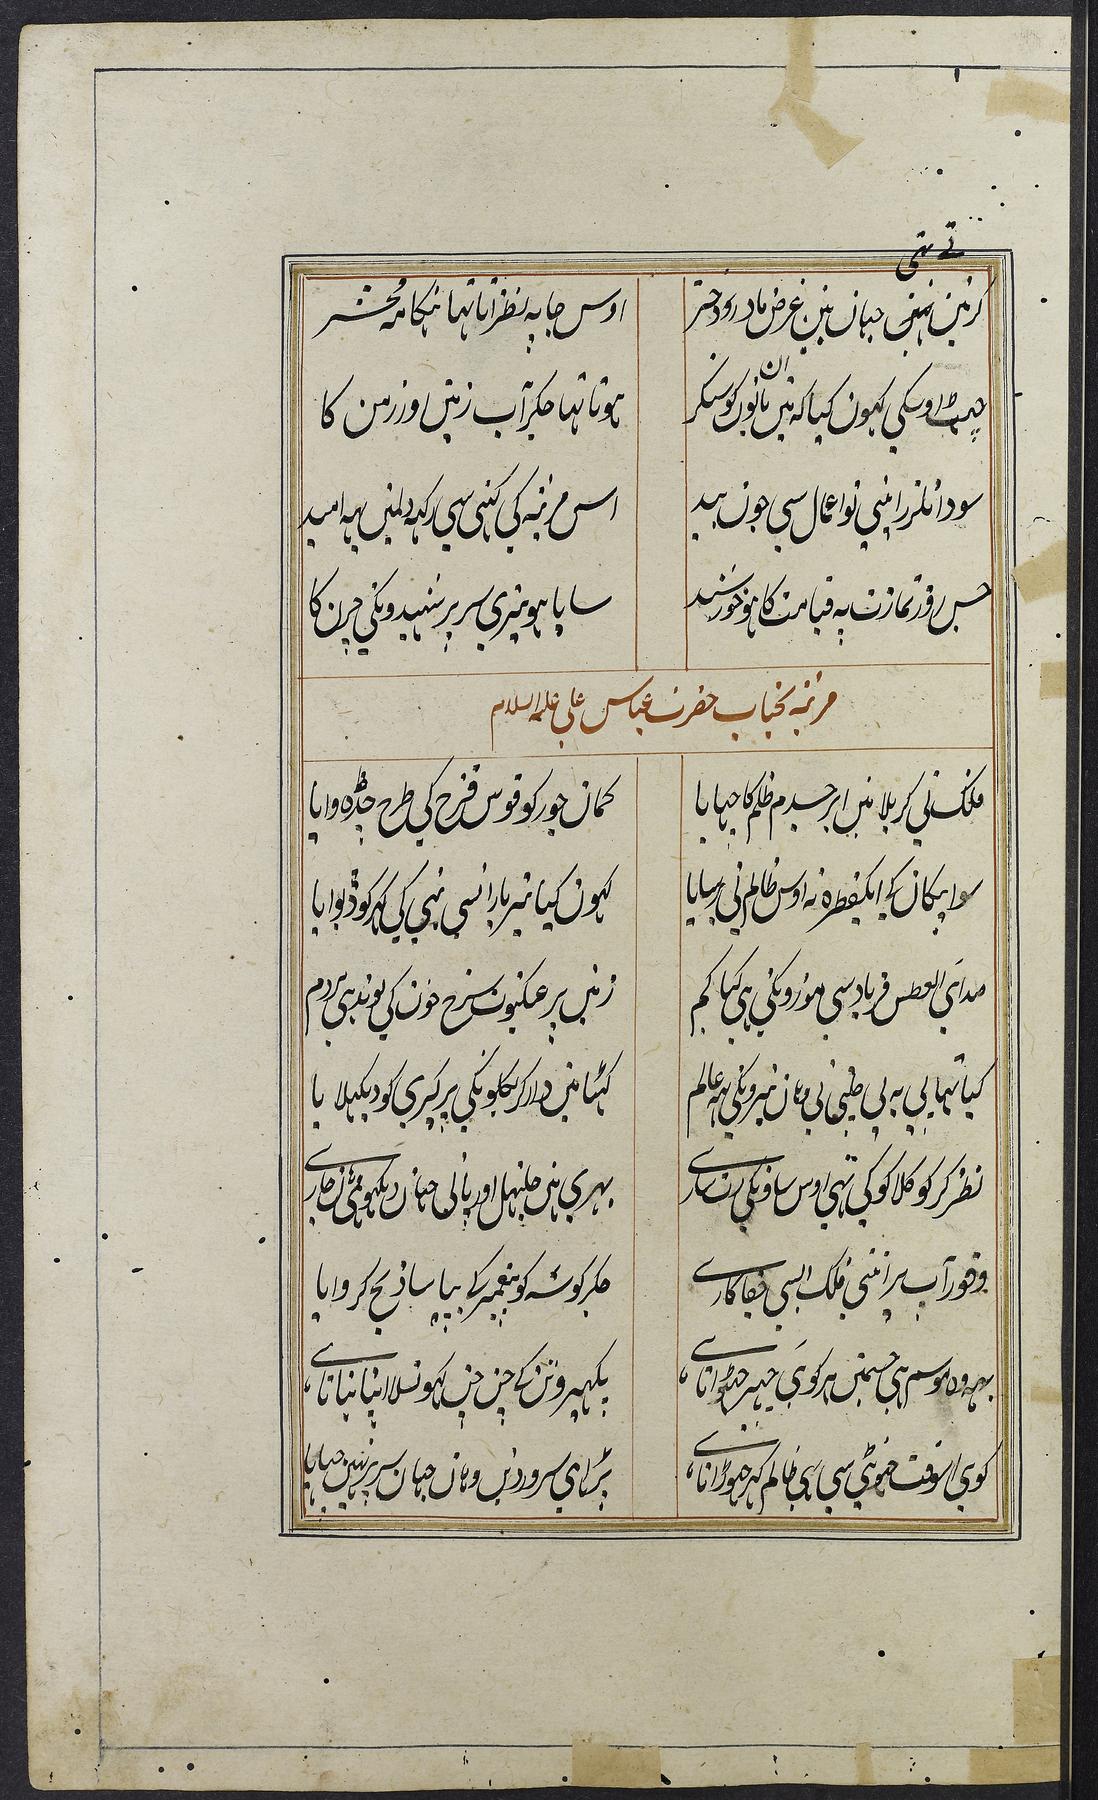 تے تہی
کرتین تہین جہان بین غرض مادر و دختر اوس جا پہ نظر اتا تہا ہنکامہ محشر
اوسکی کہون کیا کہ تین ان باتون کو سنکر ہوتا تہا جکر آب زمین اور زمن کا
سودا نلرز اپنی تو اعمال سی جون بید اس مرثیہ کی کہنی سی رکہہ دلمین یہہ امید
جس روز تمازت پہ قیامت کا ہو خورشید سایا ہو تیری سر پر شہیدونکی چرن کا
مرثیہ بجناب حضرت عباس علی علیہ السلام
فلک نی کربلا مین ابر جسدم ظلم کا چہایا کمان جور کو قوس قزح کی طرح چڑہوایا
سوا پیکان کے ایکقطرہ نہ اوس ظالم نی برسایا کہون کیا تیر بارانسی نبی کی کہر کو ڈبوایا
صدای العطش فریاد سی مورونکی ہی کیا کم زمین پر جکنیون سرخ خون کی بوند ہی ہردم
کیا تہا پی بہ پی بجلی نی وہان تیرونکی یہہ عالم کہٹا مین ولا کر بکلونکی پر کیری کو دیکہلایا
نظر کر کو کلا کوکی تہی اوس ساونکی رت ساری بہری ہین جل تہل اور پانی جہان دیکہو جاری
وفور آب پر اتنی فلک ایسی جفا کاری جکر کوشہ کو پیغمبر کے پیاسا ذبح کروایا
یہہ وہ موسم ہی جسمین ہر کوی چہپر چہواتا ہی پکہیرو تن کے چن چن کہونسلا اپنا بناتا ہی
کوی اسوقت چہوٹی سی بہی ظالم کہر چہوڑاتا ہی پڑا ہی سرور دین وہان جہان سر پر نہین چہایا